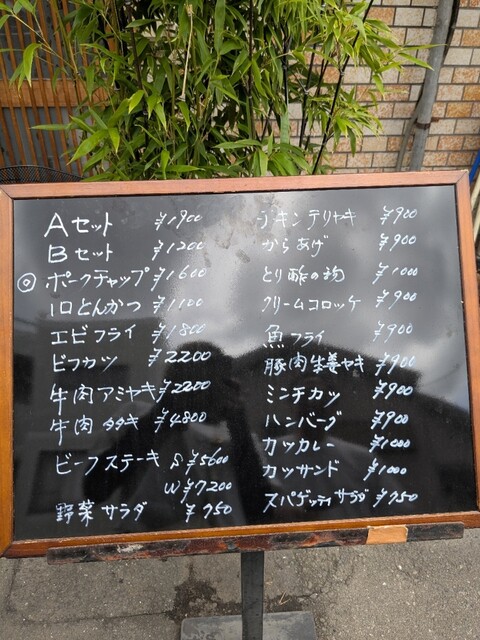 Aセット ¥1900
Bセット ¥1200
◎ポークチャップ ¥1600
1口とんかつ ¥1100
エビフライ ¥1800
ビフカツ ¥2200
牛肉アミヤキ ¥2200
牛肉タタキ ¥4800
ビーフステーキ S ¥5600
W ¥7200
野菜サラダ ¥750
チキンテリヤキ ¥900
からあげ ¥900
とり酢の物 ¥1000
クリームコロッケ ¥900
魚フライ ¥900
豚肉生姜ヤキ ¥900
ミンチカツ ¥900
ハンバーグ ¥900
カツカレー ¥1000
カツサンド ¥1000
スパゲッティサラダ ¥750